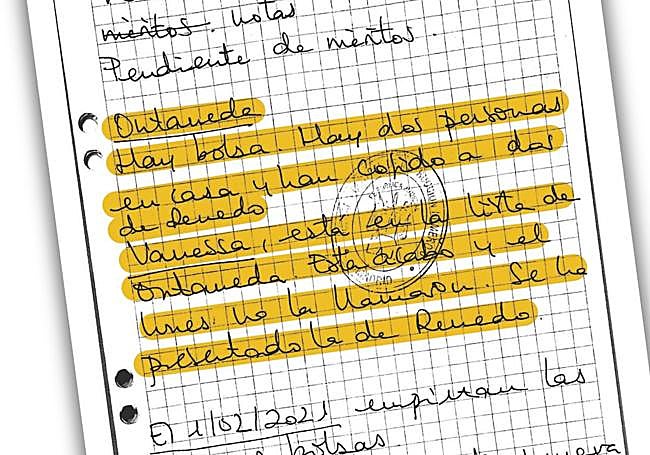 mentos. notas
Pendiente de méritos.
Ontaneda
Hay bolsa. Hay dos personas
en casa y han cogido a dos
de Renedo
Vanessa, está en la lista de
Ontaneda. Esta acabo y el
lunes no la llamaron. Se ha
presentado la de Renedo.
El 1/02/2021 empiezan las
bolsas
nueva